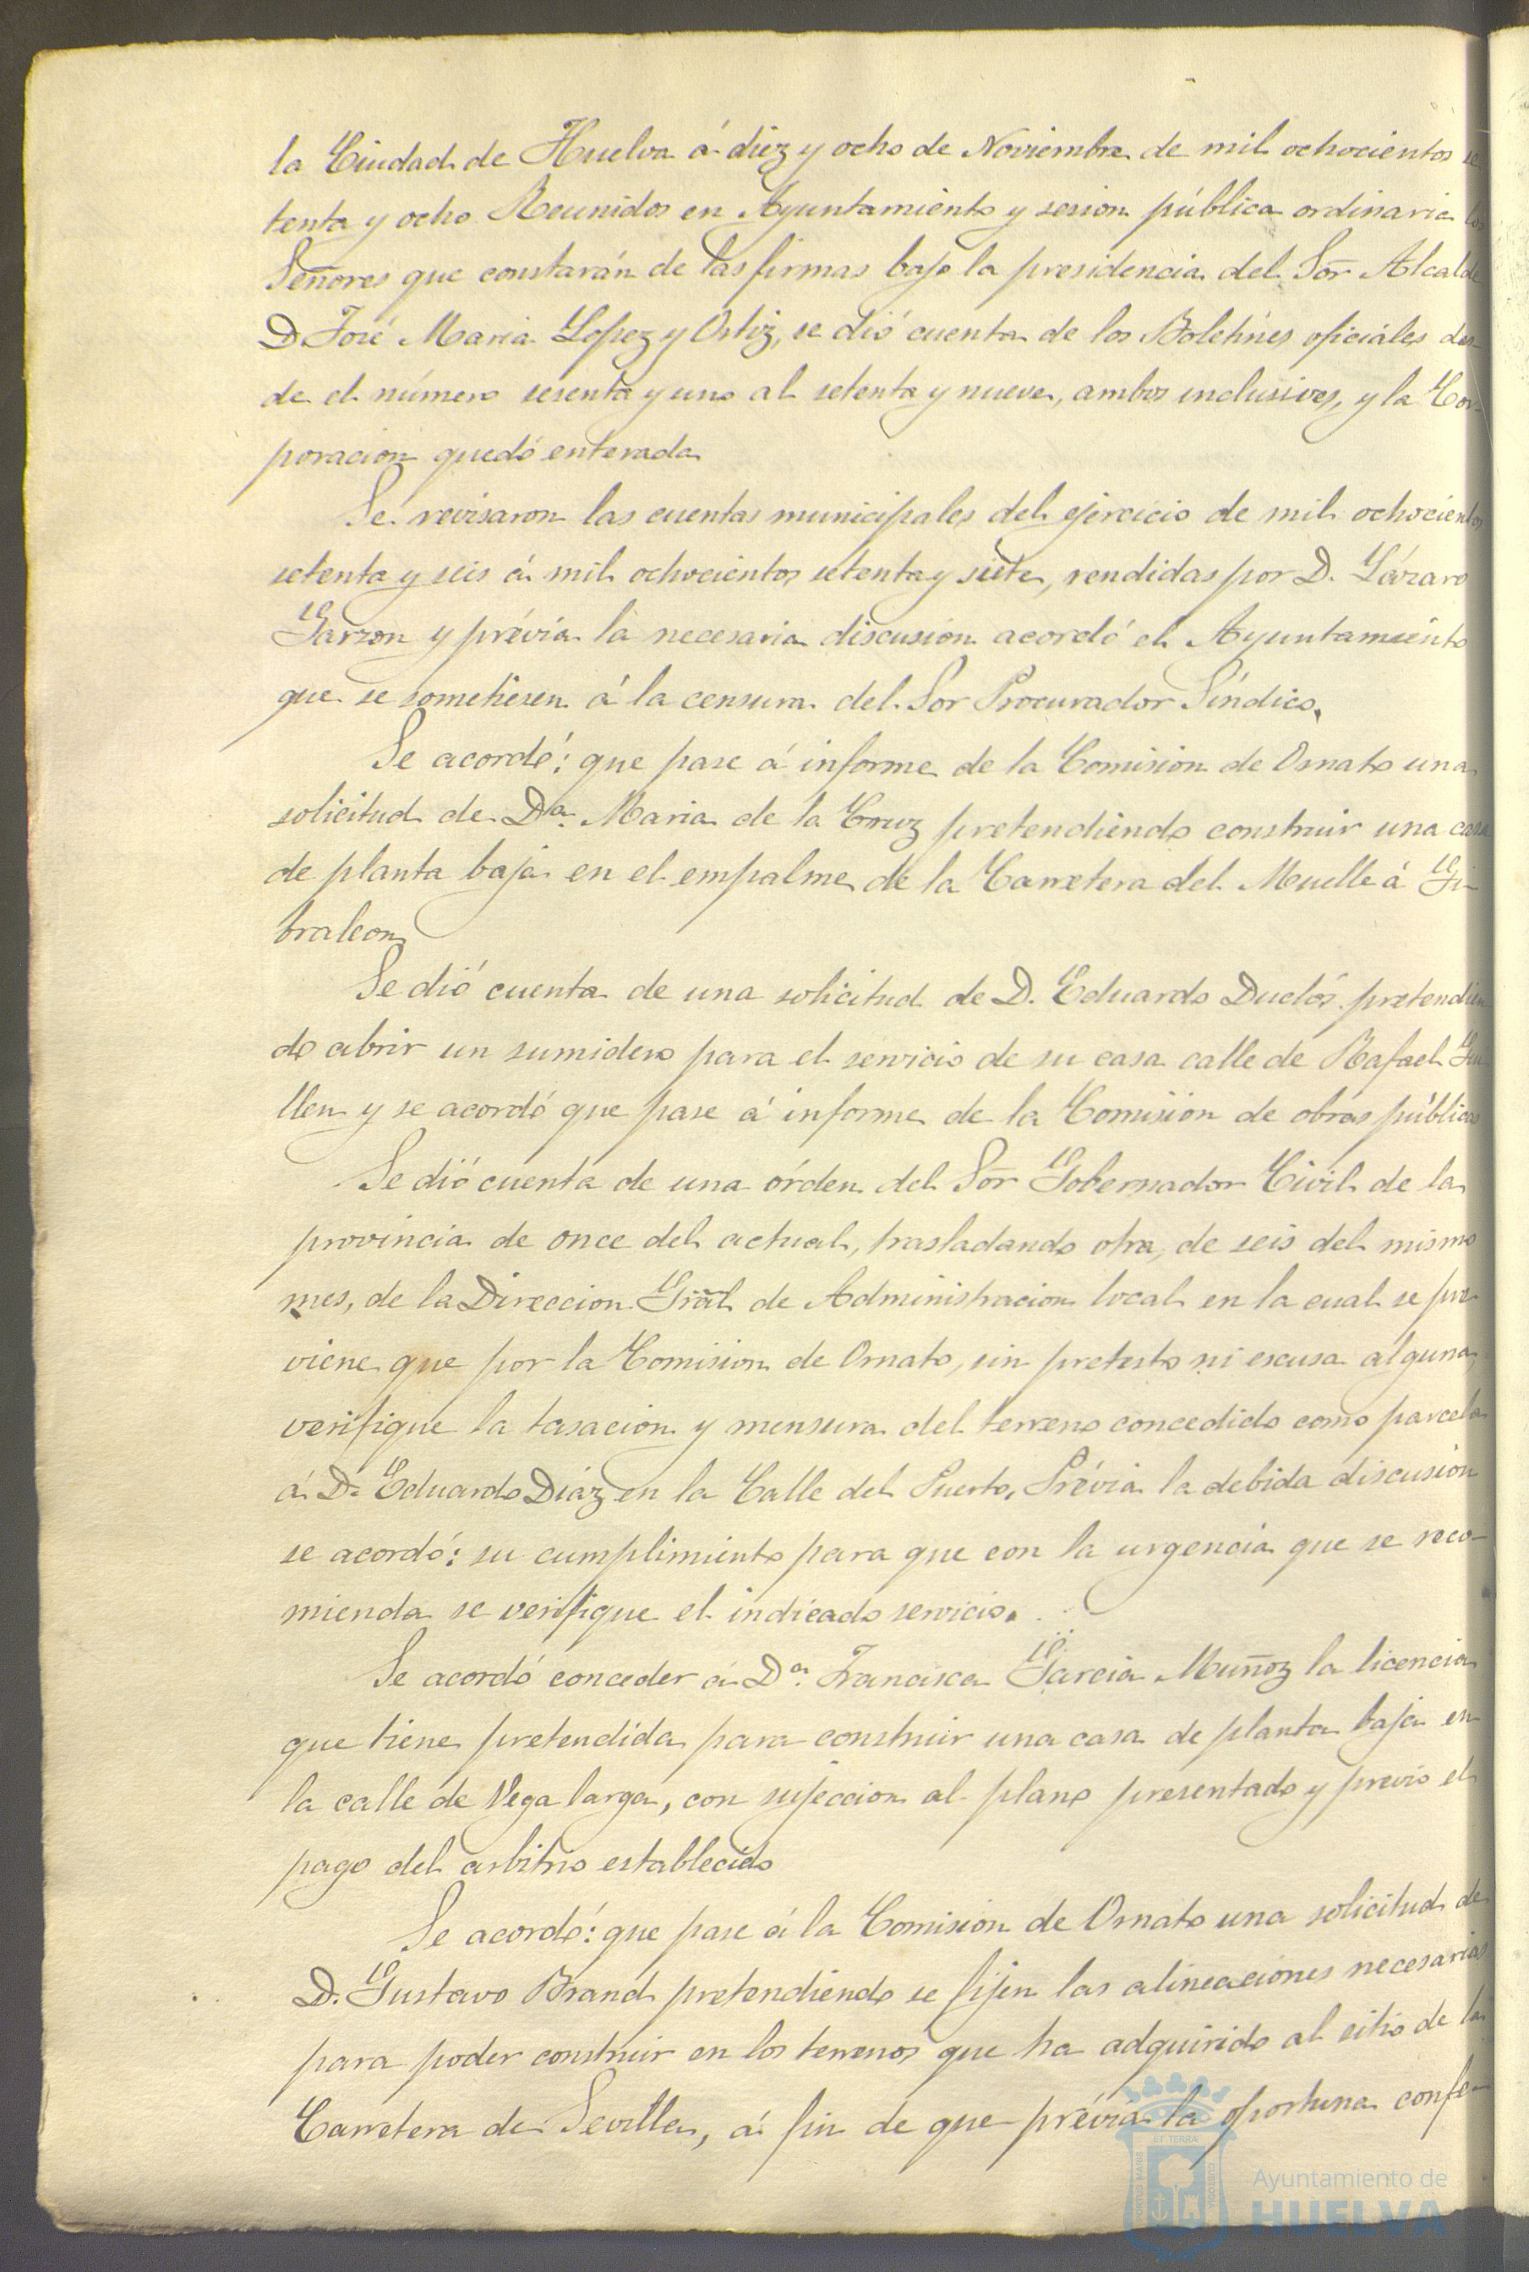 la Ciudad de Huelva á diez y ocho de Noviembre de mil ochocientos se
tenta y ocho Reunidos en Ayuntamiento y sesion pública ordinaria los
Señores que constarán de las firmas bajo la presidencia del Sōr Alcalde
D José Maria Lopez y Ortiz, se dió cuenta de los Boletines oficiáles des-
de el número sesenta y uno al setenta y nueve, ambos inclusives, y la Cor-
poracion quedó enterada
Se revisaron las cuentas municipales del ejercicio de mil ochocientos
setenta y seis á mil ochocientos setenta y siete, rendidas por D. Lázaro
Garzon y prévia la necesaria discusion acordó el Ayuntamiento
que se sometiesen á la censura del Sor Procurador Síndico.
Se acordó: que pase á informe de la Comision de Ornato una
solicitud de Dª. Maria de la Cruz pretendiendo construir una casa
de planta baja en el empalme de la Carretera del Muelle á Gi-
braleon
Se dió cuenta de una solicitud de D. Eduardo Duclós pretendien
do abrir un sumidero para el servicio de su casa calle de Rafael Gui
llen y se acordó que pase á informe de la Comision de obras públicas
Se dió cuenta de una órden del Sōr Gobernador Civil de la
provincia de once del actual, trasladando otra, de seis del mismo
mes, de la Direccion Grāl de Administracion local en la cual se pre
viene que por la Comision de Ornato, sin pretesto ni escusa alguna,
verifique la tasacion y mensura del terreno concedido como parcela
á D. Eduardo Diáz en la Calle del Puerto, Prévia la debida discusion
se acordó: su cumplimiento para que con la urgencia que se reco-
mienda se verifique el indicado servicio.
Se acordó conceder á Dª. Francisca Garcia Muñoz la licencia
que tiene pretendida para construir una casa de planta baja en
la calle de Vega larga, con sujeccion al plano presentado y previo el
pago del arbitrio establecido
Se acordó: que pase á la Comision de Ornato una solicitud de
D. Gustavo Brand pretendiendo se fijen las alineaciones necesarias
para poder construir en los terrenos que ha adquirido al sitio de la
Carretera de Sevilla, á fin de que prévia la oportuna confe-
Ayuntamiento de
HUELVA